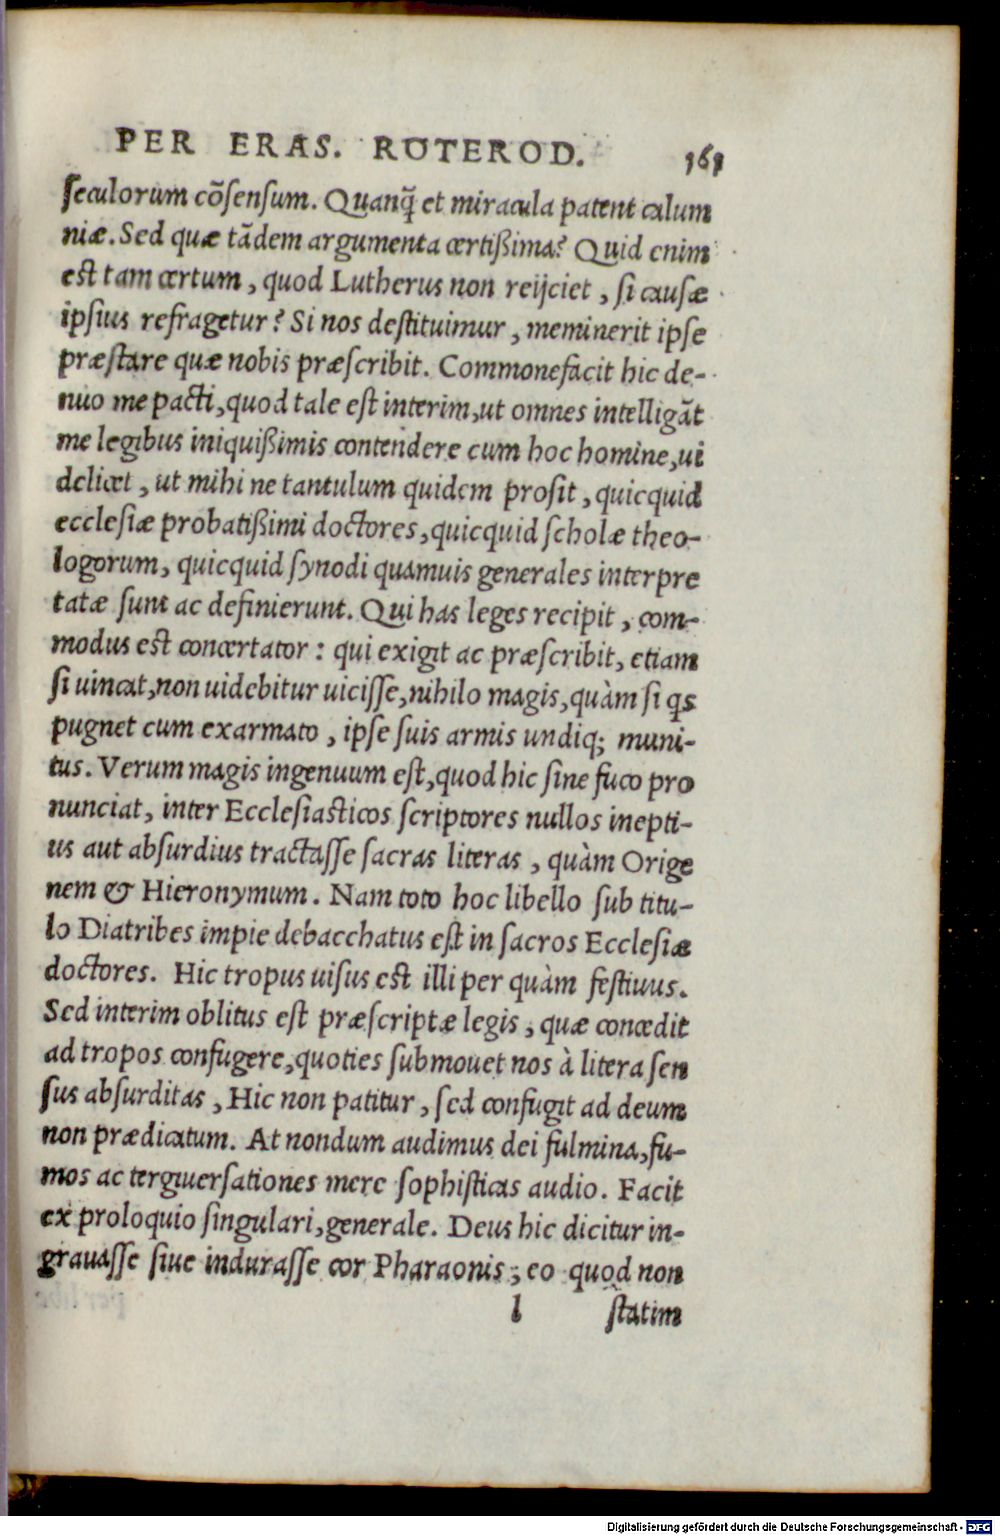 PER ERAS. ROTEROD. 161
seculorum cõsensum. Quanq̃ et miracula patent calum
niæ. Sed quæ tãdem argumenta certißima? Quid enim
est tam certum, quod Lutherus non reijciet, si causæ
ipsius refragetur? Si nos destituimur, meminerit ipse
præstare quæ nobis præscribit. Commonefacit hic de-
nuo me pacti, quod tale est interim, ut omnes intelligãt
me legibus iniquißimis contendere cum hoc homine, ui
delicet, ut mihi ne tantulum quidem prosit, quicquid
ecclesiæ probatißimi doctores, quicquid scholæ theo-
logorum, quicquid synodi quamuis generales interpre
tatæ sunt ac definierunt. Qui has leges recipit, com-
modus est concertator: qui exigit ac præscribit, etiam
si uincat, non uidebitur uicisse, nihilo magis, quàm si qs
pugnet cum exarmato, ipse suis armis undiq; muni-
tus. Verum magis ingenuum est, quod hic sine fuco pro
nunciat, inter Ecclesiasticos scriptores nullos inepti-
us aut absurdius tractasse sacras literas, quàm Orige
nem & Hieronymum. Nam toto hoc libello sub titu-
lo Diatribes impie debacchatus est in sacros Ecclesiæ
doctores. Hic tropus uisus est illi per quàm festiuus.
Sed interim oblitus est præscriptæ legis, quæ concedit
ad tropos confugere, quoties submouet nos à litera sen
sus absurditas, Hic non patitur, sed confugit ad deum
non prædicatum. At nondum audimus dei fulmina, fu-
mos ac tergiuersationes mere sophisticas audio. Facit
ex proloquio singulari, generale. Deus hic dicitur in-
grauasse siue indurasse cor Pharaonis; eo quod non
l statim
Digitalisierung gefördert durch die Deutsche Forschungsgemeinschaft - DFG